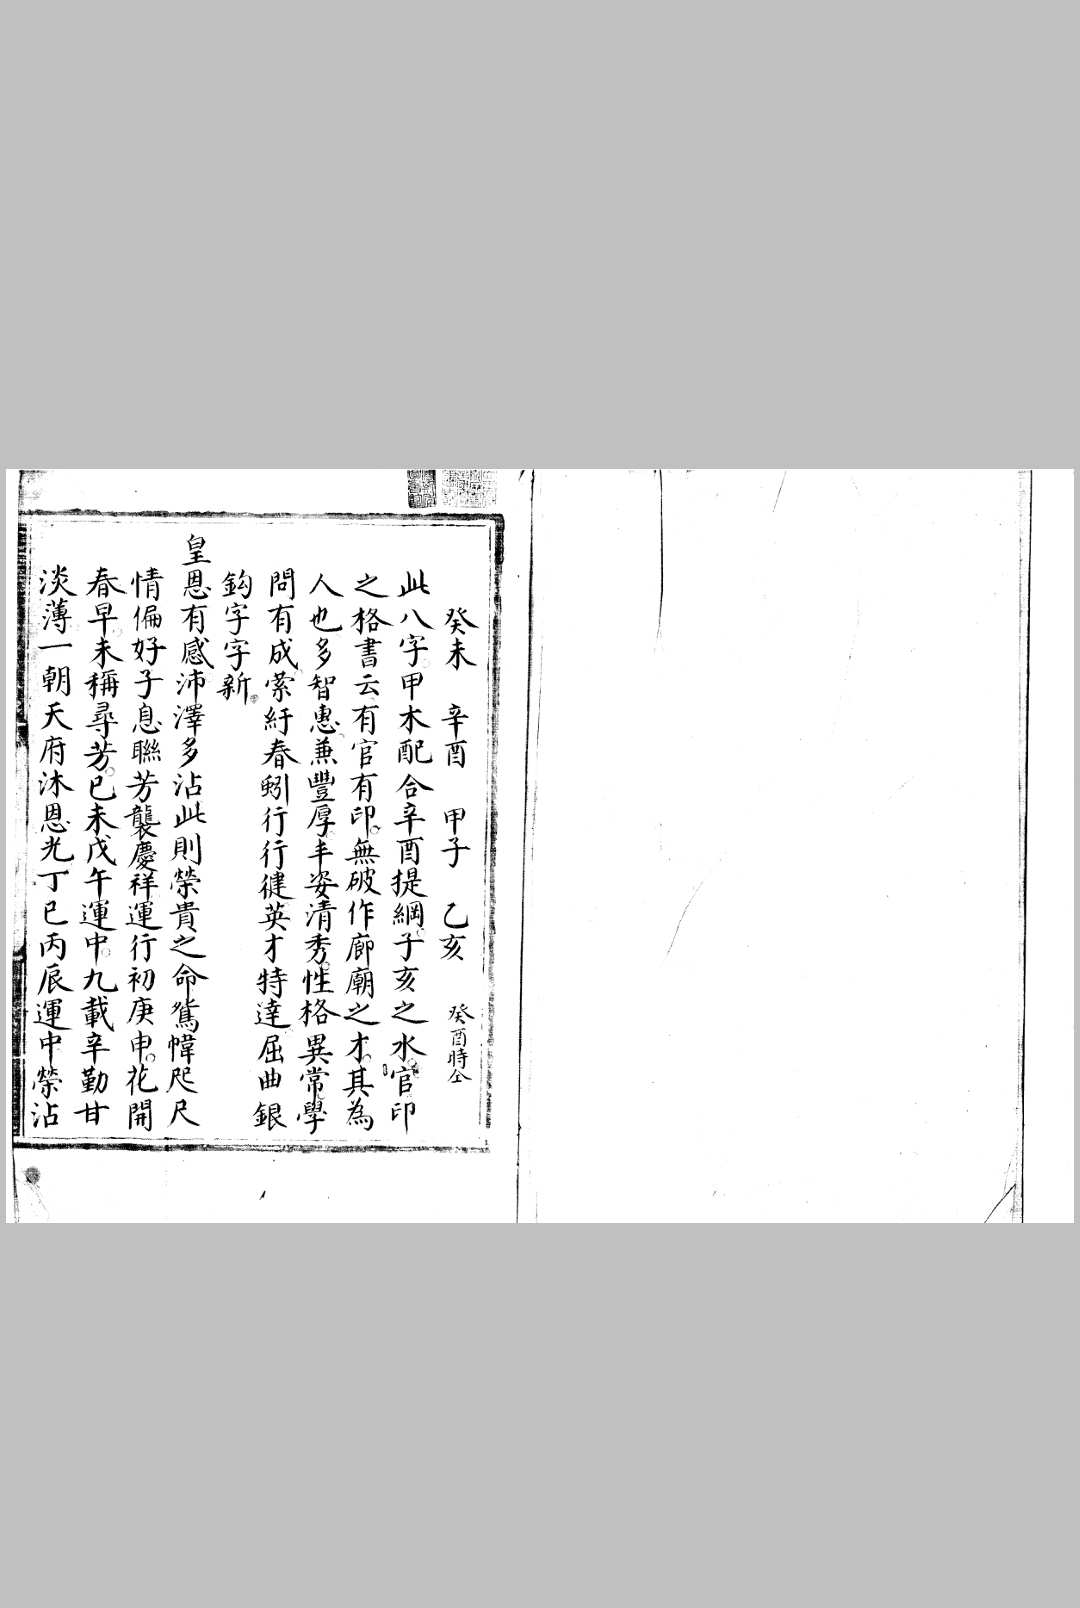 癸未 辛酉 甲子 乙亥 癸酉時仝
此八字甲木配合辛酉提綱子亥之水官印
之格書云有官有印無破作廊廟之才其為
人也多智惠兼豐厚丰姿清秀性格異常學
問有成縈紆春蚓行行徤英才特達屈曲銀
鈎字字新
皇恩有感沛澤多沾此則榮貴之命鴛幃咫尺
情偏好子息聯芳襲慶祥運行初庚申花開
春早未稱尋芳已未戊午運中九載辛勤甘
淡薄一朝天府沐恩光丁巳丙辰運中榮沾